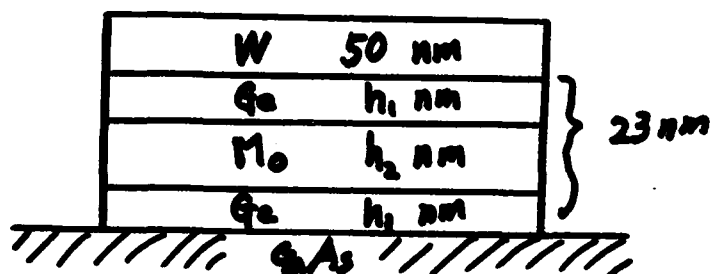 W 50 nm
Ge h₁ nm
Mo h₂ nm
Ge h₁ nm
23 nm
GaAs